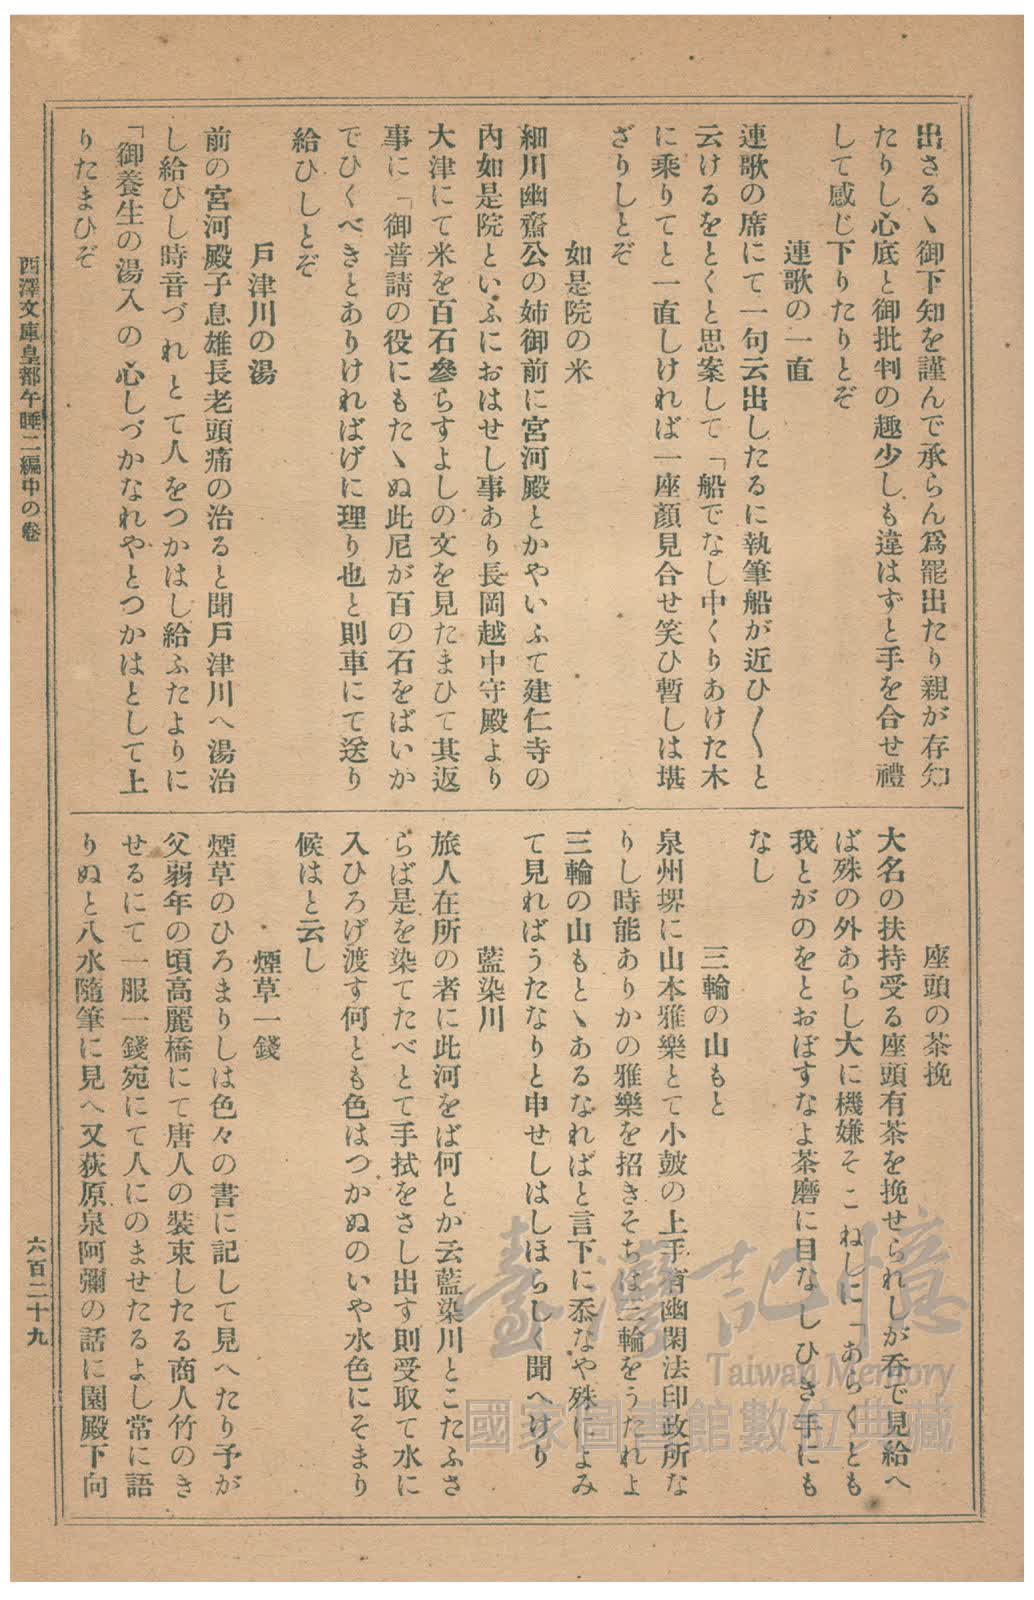 出さるゝ御下知を謹んで承らん爲罷出たり親が存知
たりし心底と御批判の趣少しも違はずと手を合せ禮
して感じ下りたりとぞ
連歌の一直
連歌の席にて一句云出したるに執筆船が近ひ〳〵と
云けるをとくと思案して「船でなし中くりあけた木
に乘りてと一直しければ一座顏見合せ笑ひ暫しは堪
ざりしとぞ
如是院の米
細川幽齋公の姉御前に宮河殿とかやいふて建仁寺の
內如是院といふにおはせし事あり長岡越中守殿より
大津にて米を百石參らすよしの文を見たまひて其返
事に「御普請の役にもたゝぬ此尼が百の石をばいか
でひくべきとありければげに理り也と則車にて送り
給ひしとぞ
戶津川の湯
前の宮河殿子息雄長老頭痛の治ると聞戶津川へ湯治
し給ひし時音づれとて人をつかはし給ふたよりに
「御養生の湯入の心しづかなれやとつかはとして上
りたまひぞ
座頭の茶挽
大名の扶持受る座頭有茶を挽せられしが呑で見給へ
ば殊の外あらし大に機嫌そこねしに「あらくとも
我とがのをとおぼすなよ茶磨に目なしひき手にも
なし
三輪の山もと
泉州堺に山本雅樂とて小鼓の上手有幽閑法印政所な
りし時能ありかの雅樂を招きそちは三輪をうたれよ
三輪の山もとゝあるなればと言下に忝なや殊によみ
て見ればうたなりと申せしはしほらしく聞へけり
藍染川
旅人在所の者に此河をば何とか云藍染川とこたふさ
らば是を染てたべとて手拭をさし出す則受取て水に
入ひろげ渡す何とも色はつかぬのいや水色にそまり
候はと云し
煙草一錢
煙草のひろまりしは色々の書に記して見へたり予が
父弱年の頃高麗橋にて唐人の裝束したる商人竹のき
せるにて一服一錢宛にて人にのませたるよし常に語
りぬと八水隨筆に見へ又荻原泉阿彌の話に園殿下向
西澤文庫皇都午睡二編中の卷
六百二十九
臺灣記憶
Taiwan Memory
國家圖書館數位典藏